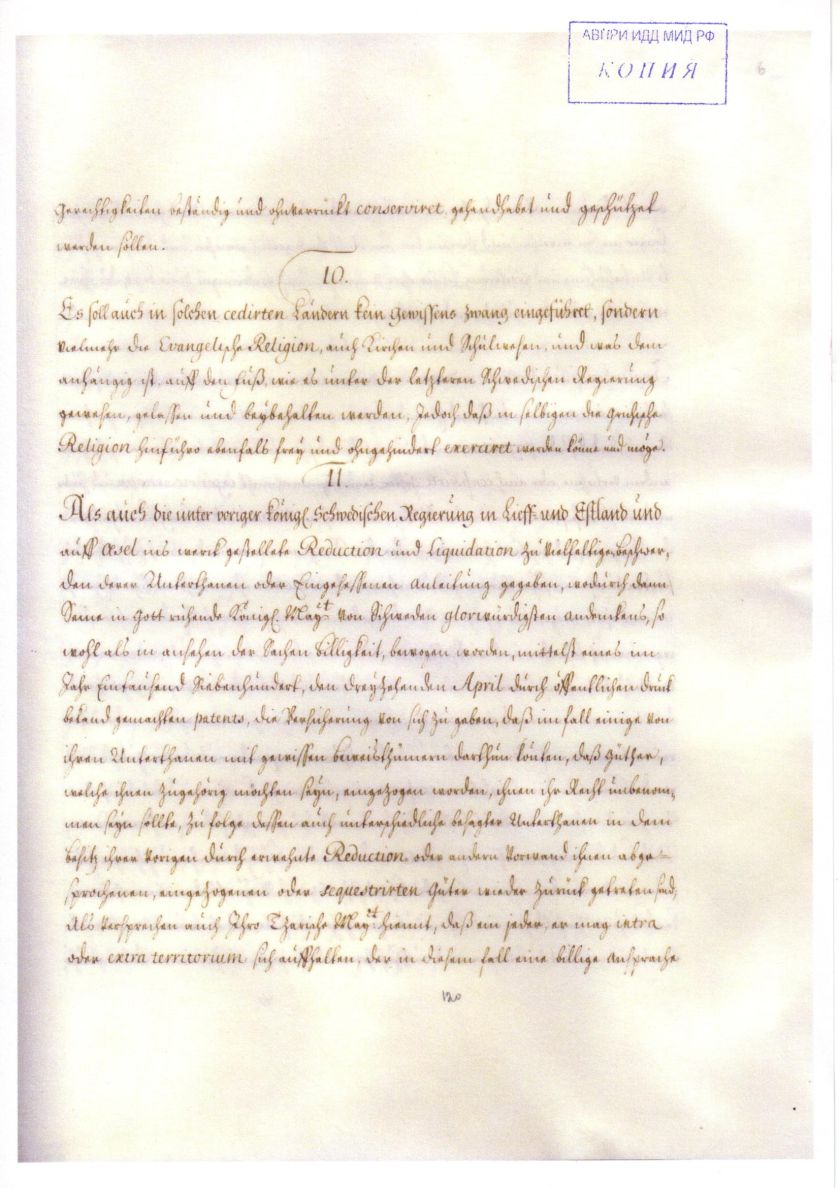 АВПРИ ИДД МИД РФ
КОПИЯ
6
Gerechtigkeiten beständig und ohnverrückt conserviret, gehandhabet und geschützet
werden sollen.
10.
Es soll auch in solchen cedirten Ländern kein Gewissens Zwang eingeführet, sondern
vielmehr die Evangelische Religion, auch Kirchen und Schulwesen, und was dem
anhängig ist, auff den Fuß, wie es unter der letzteren Schwedischen Regierung
gewesen, gelassen und beybehalten werden, Jedoch daß in selbigen die Grichische
Religion hinführo ebenfals frey und ohngehindert exerciret werden könne und möge.
11.
Als auch die unter voriger Königl. Schwedischen Regierung in Lieff- und Estland und
auff Œsel ins werck gestellete Reduction und Liquidation zu vielfältigen beschwer,
den derer Unterthanen oder Eingesessenen Anleitung gegeben, wodurch dann
Seine in Gott ruhende Königl. Mayt. von Schweden glorwürdigsten andenckens, so
wohl als in ansehen der Sachen billigkeit, bewogen worden, mittelst eines im
Jahr Eintausend Siebenhundert, den dreyzehenden April durch öffentlichen druck
bekand gemachten patents, die Versicherung von sich zu geben, daß im fall einige von
ihren Unterthanen mit gewissen beweisthümern darthun könten, daß Güther,
welche ihnen zugehörig möchten seyn, eingezogen worden, ihnen ihr Recht unbenom,
men seyn sollte, zu folge dessen auch unterschiedliche besagter Unterthanen in dem
besitz ihrer vorigen durch erwehnte Reduction oder andern Vorwand ihnen abge-
sprochenen, eingezogenen oder sequestrirten Güter wieder zurück getreten sind,
Als versprechen auch Ihro Tzarische Mayt. hiemit, daß ein jeder, er mag intra
oder extra territorium sich auffhalten, der in diesem fall eine billige Ansprache
120